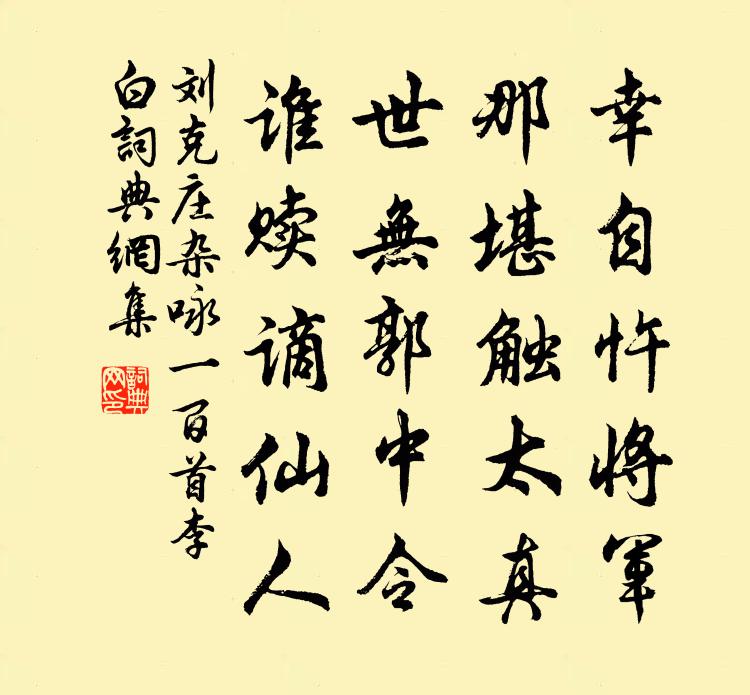 幸自忤将軍
那堪触太真
世無郭中令
谁赎谪仙人
刘克庄杂咏一百首李
白詞典網集
詞典网印